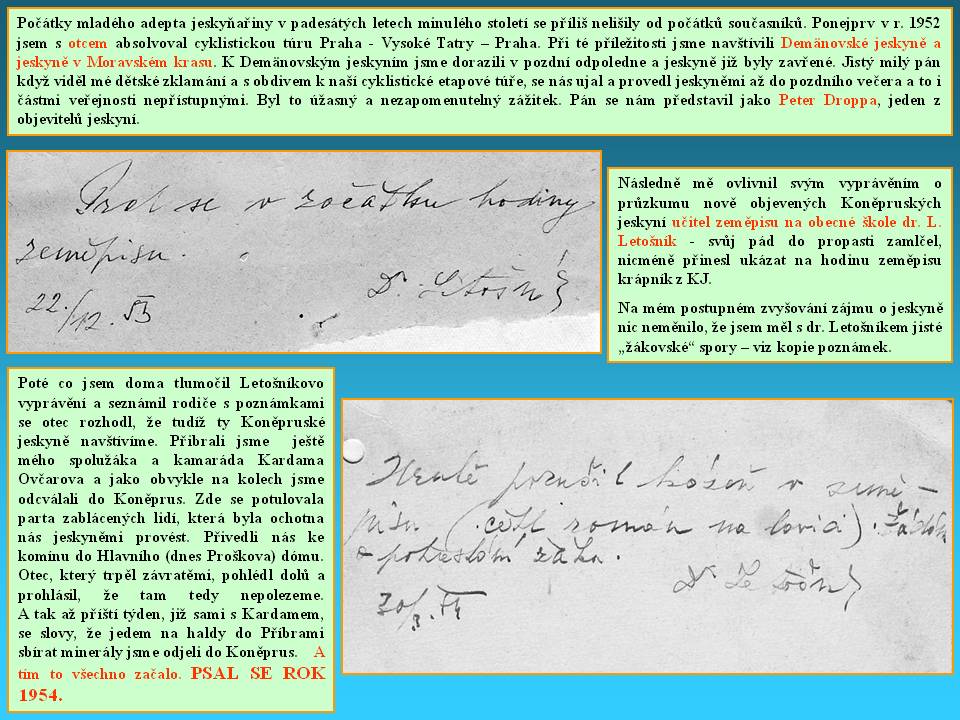 Počátky mladého adepta jeskyňařiny v padesátých letech minulého století se příliš nelišily od počátků současníků. Ponejprv v r. 1952
jsem s otcem absolvoval cyklistickou túru Praha - Vysoké Tatry – Praha. Při té příležitosti jsme navštívili Demänovské jeskyně a
jeskyně v Moravském krasu. K Demänovským jeskyním jsme dorazili v pozdní odpoledne a jeskyně již byly zavřené. Jistý milý pán
když viděl mé dětské zklamání a s obdivem k naší cyklistické etapové túře, se nás ujal a provedl jeskyněmi až do pozdního večera a to i
částmi veřejnosti nepřístupnými. Byl to úžasný a nezapomenutelný zážitek. Pán se nám představil jako Peter Droppa, jeden z
objevitelů jeskyní.
Prdl se v začátku hodiny
zeměpisu.
Dr. Letošník
22./12. 53
Následně mě ovlivnil svým vyprávěním o
průzkumu nově objevených Koněpruských
jeskyní učitel zeměpisu na obecné škole dr. L.
Letošník - svůj pád do propasti zamlčel,
nicméně přinesl ukázat na hodinu zeměpisu
krápník z KJ.
Na mém postupném zvyšování zájmu o jeskyně
nic neměnilo, že jsem měl s dr. Letošníkem jisté
„žákovské“ spory – viz kopie poznámek.
Poté co jsem doma tlumočil Letošníkovo
vyprávění a seznámil rodiče s poznámkami
se otec rozhodl, že tudíž ty Koněpruské
jeskyně navštívíme. Přibrali jsme ještě
mého spolužáka a kamaráda Kardama
Ovčarova a jako obvykle na kolech jsme
odcválali do Koněprus. Zde se potulovala
parta zablácených lidí, která byla ochotna
nás jeskyněmi provést. Přivedli nás ke
komínu do Hlavního (dnes Proškova) dómu.
Otec, který trpěl závratěmi, pohlédl dolů a
prohlásil, že tam tedy nepolezeme.
A tak až příští týden, již sami s Kardamem,
se slovy, že jedem na haldy do Příbrami
sbírat minerály jsme odjeli do Koněprus. A
tím to všechno začalo. PSAL SE ROK
1954.
Hrubě porušil kázeň v země-
pisu. (četl román na lavici). Žádám
o potrestání žáka.
Dr. Letošník